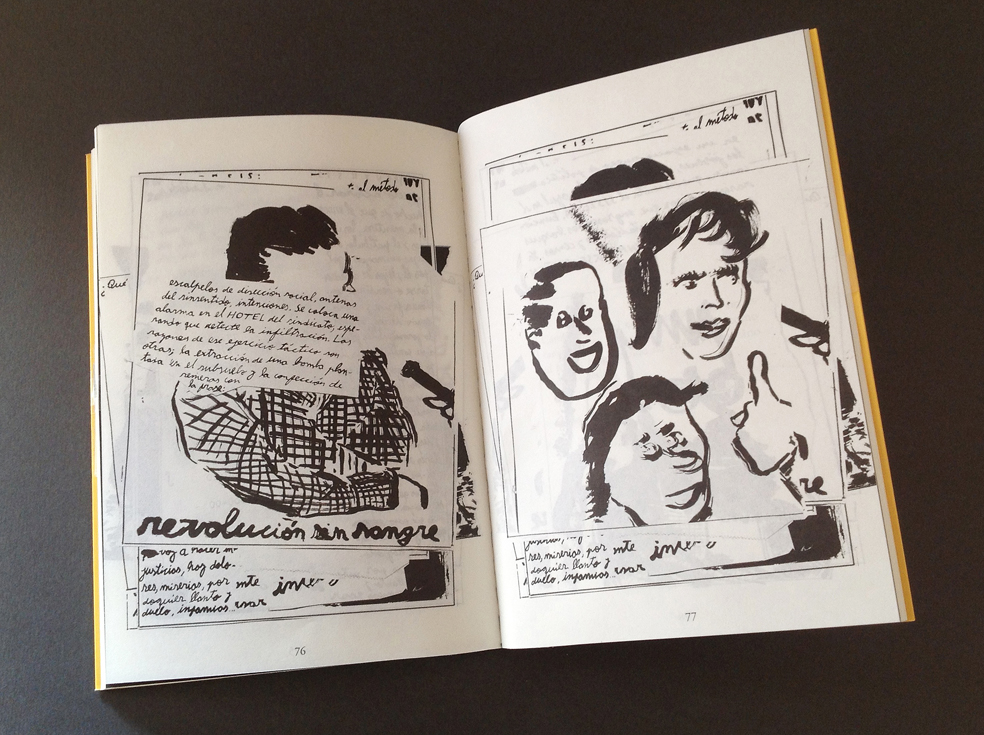 + al método
¿Qué
escalpelos de disección social, antenas
del sinsentido, intenciones. Se coloca una
alarma en el HOTEL del sindicato, espe-
rando que detecte la infiltración. Las
razones de ese ejercicio táctico son
otras; la extracción de una bomba plan-
tada en el subsuelo y la confección de
remeras con
la frase:
revolución sin sangre
voy a hacer in-
justicias, hay dolo-
res, miserias, por
doquier llanto y
duelo, infamias
76
+ al método
Qu
re
res, miserias, por
doquier llanto y
duelo, infamias
77